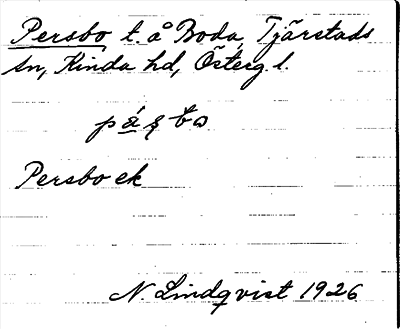 Persbo t. å Boda, Tjärstads
sn, Kinda hd, Österg. l.
Persbo ek
N. Lindqvist 1926